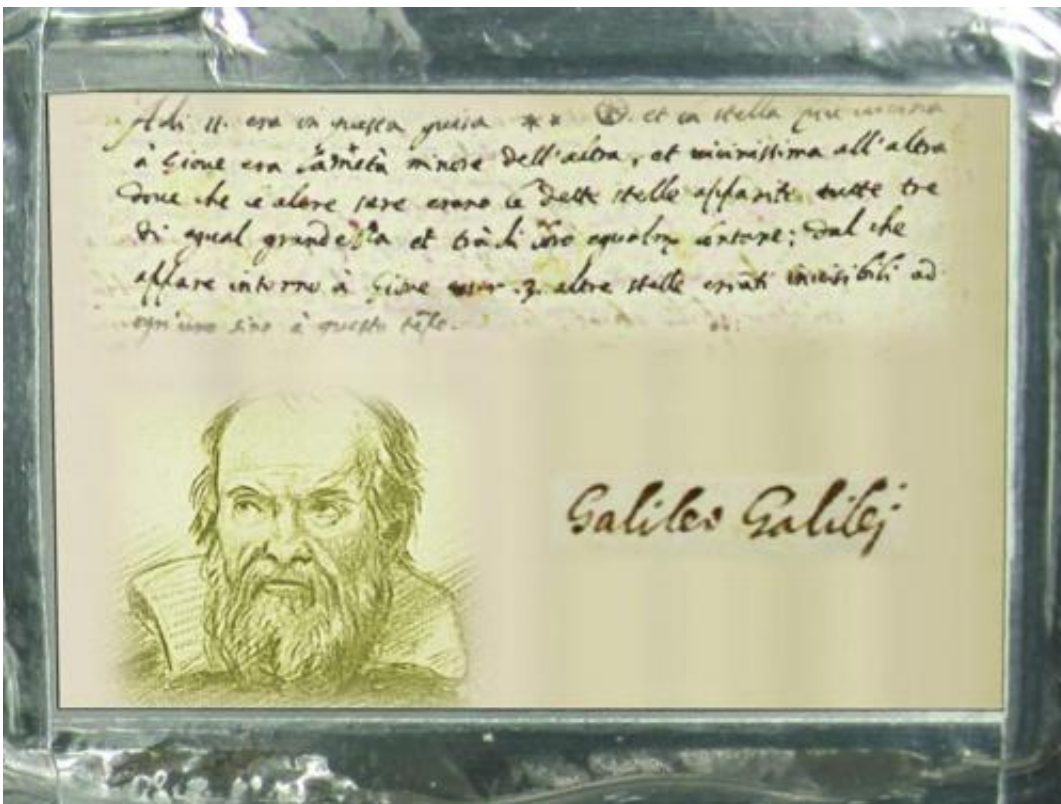 Adi 11. era in questa guisa ** et la stella più vicina
à Giove era la metà minore dell'altra, et vicinissima all'altra
dove che le altre sere erano le dette stelle apparite tutte tre
di egual grandezza et trà di loro egualm lontane; dal che
appare intorno à Giove esser .3. altre stelle erranti invisibili ad
ogn'uno sino à questo tẽpo.
Galileo Galilej